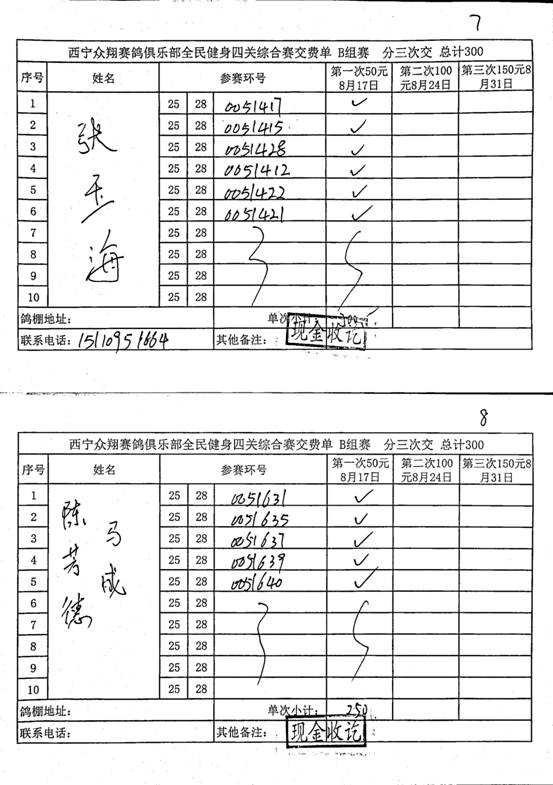 7
西宁众翔赛鸽俱乐部全民健身四关综合赛交费单 B组赛 分三次交 总计300
序号 姓名 参赛环号 第一次50元8月17日 第二次100元8月24日 第三次150元8月31日
张玉海
1 25 28 0051417 ✓
2 25 28 0051415 ✓
3 25 28 0051428 ✓
4 25 28 0051412 ✓
5 25 28 0051422 ✓
6 25 28 0051421 ✓
7 25 28
8 25 28
9 25 28
10 25 28
鸽棚地址: 单次小计:
联系电话: 15110951864 其他备注: 现金收讫
8
西宁众翔赛鸽俱乐部全民健身四关综合赛交费单 B组赛 分三次交 总计300
序号 姓名 参赛环号 第一次50元8月17日 第二次100元8月24日 第三次150元8月31日
陈芳德 马成
1 25 28 0051631 ✓
2 25 28 0051635 ✓
3 25 28 0051637 ✓
4 25 28 0051639 ✓
5 25 28 0051640 ✓
6 25 28
7 25 28
8 25 28
9 25 28
10 25 28
鸽棚地址: 单次小计: 250
联系电话: 其他备注: 现金收讫